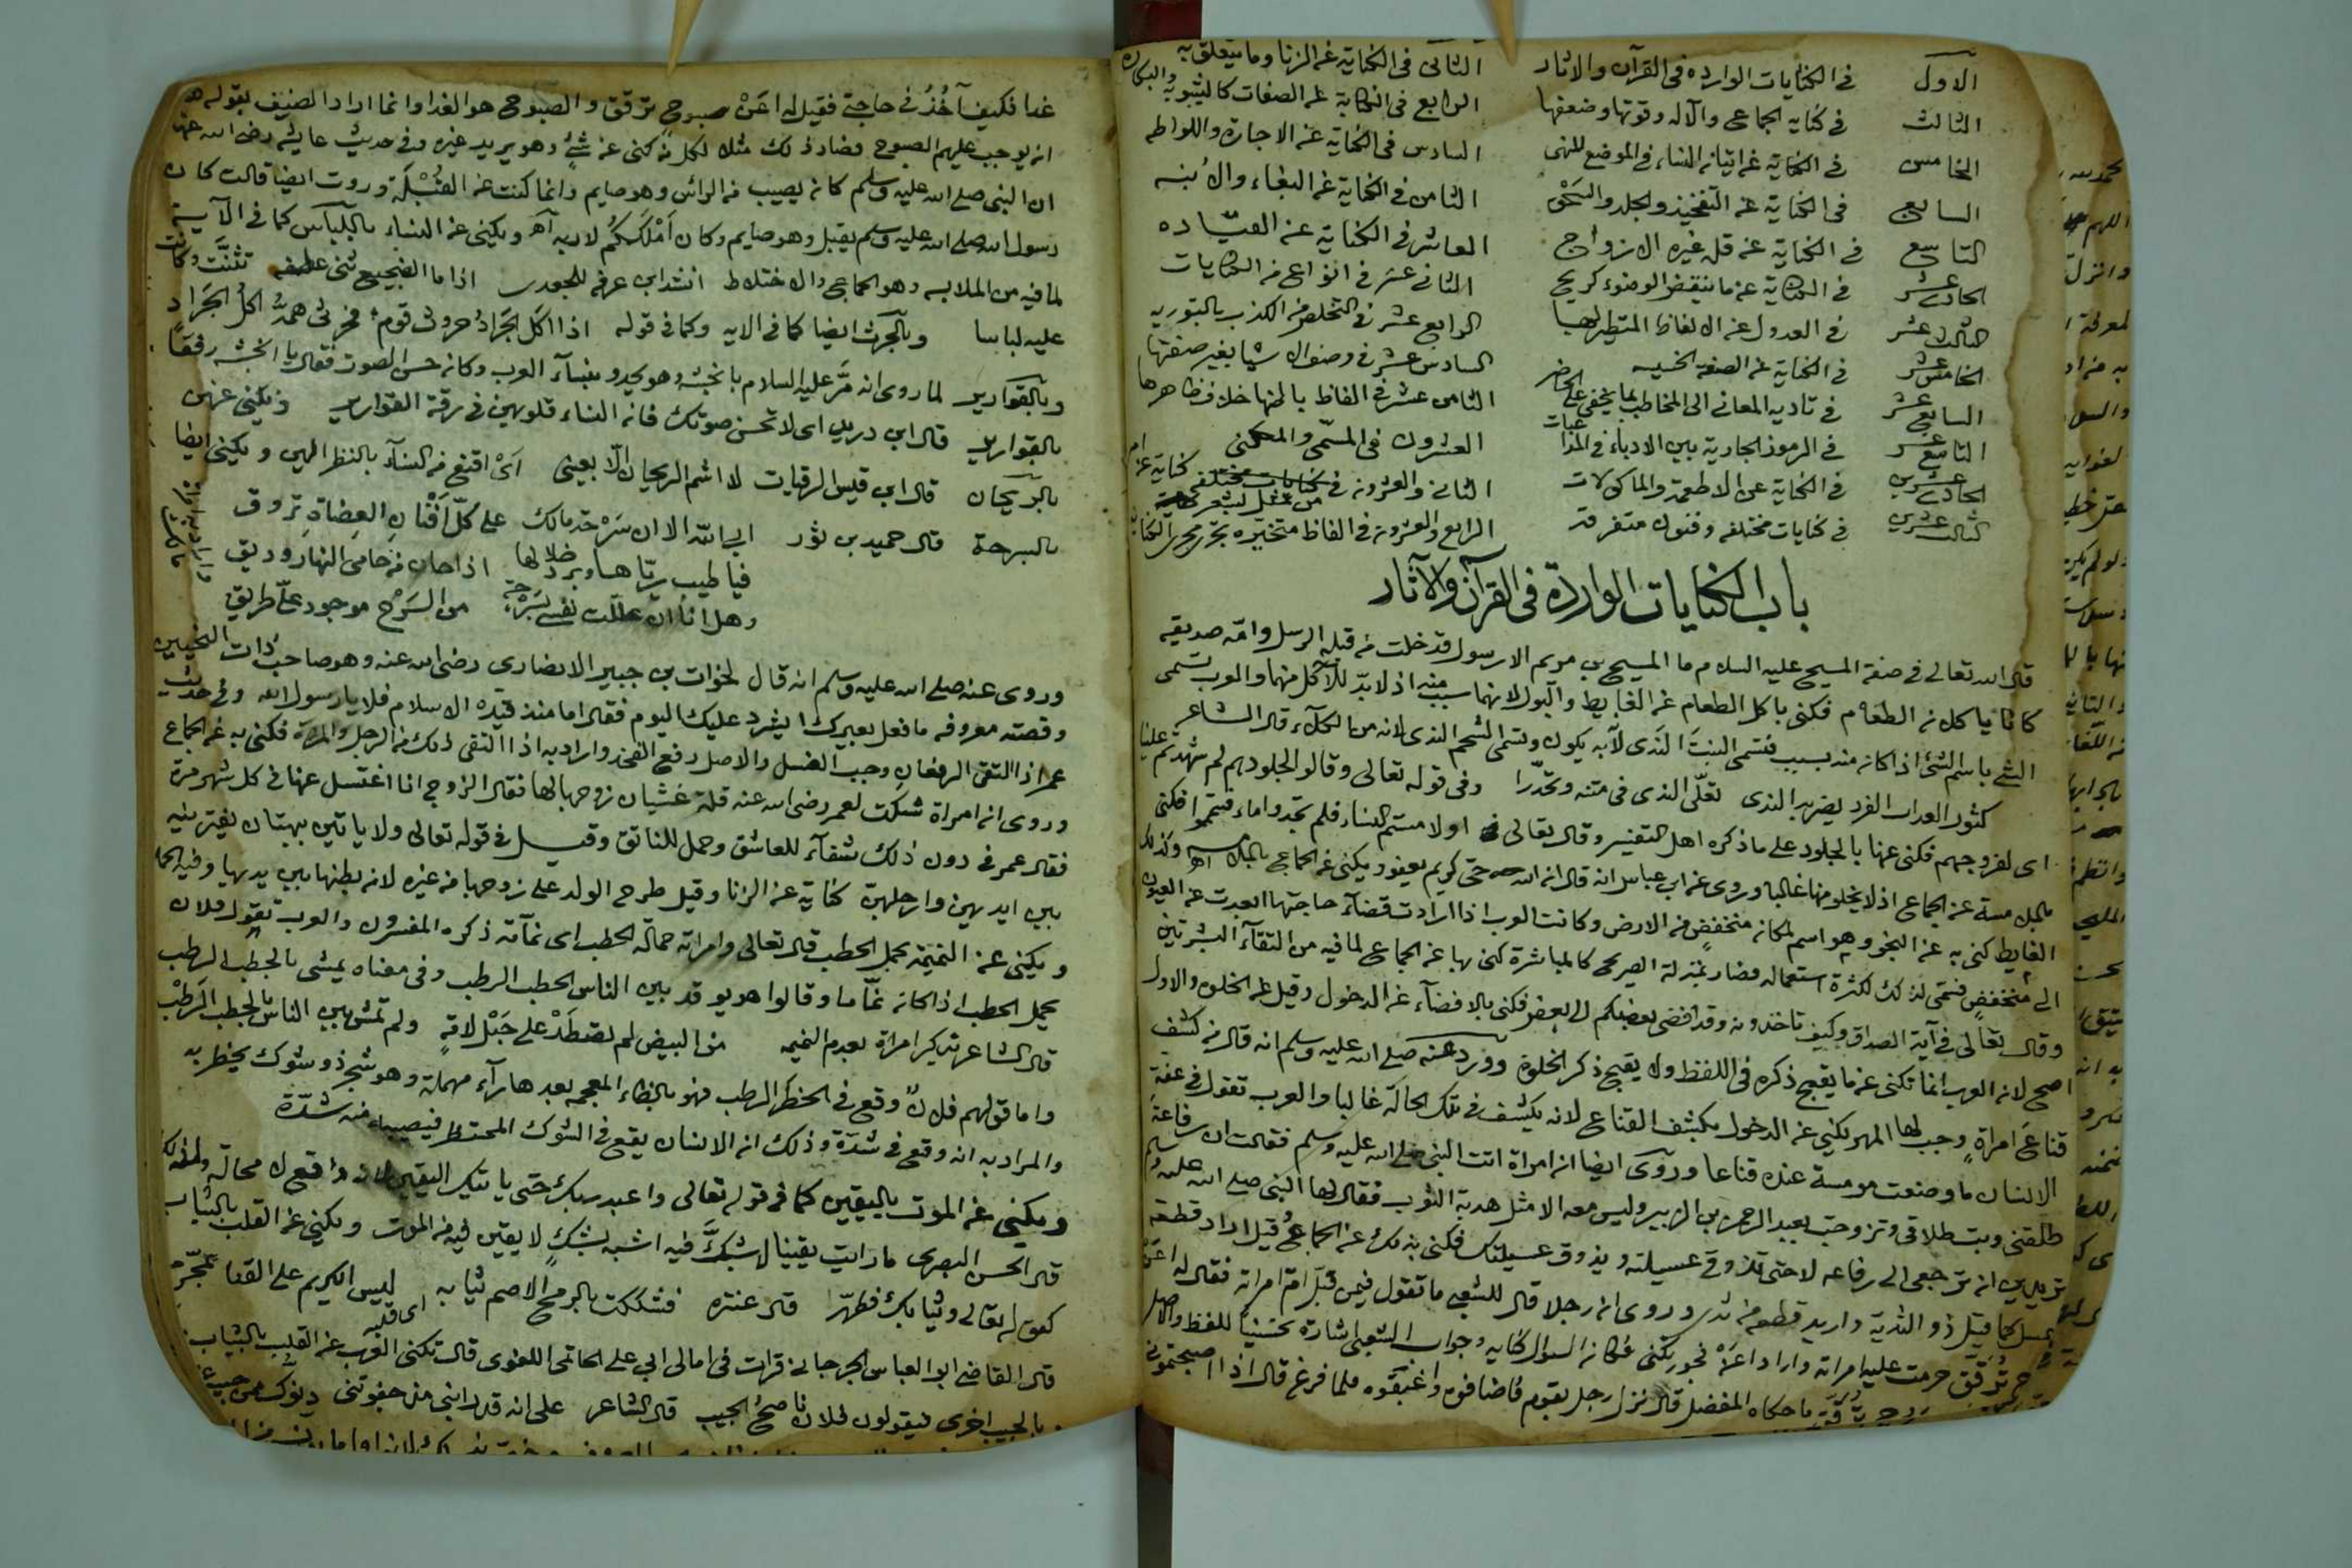 الاول في الكنايات الوارده فى القرآن والاثار الثانى فى الكناية عن الزنا وما يتعلق به
الثالث في كناية الجماع والآله وقوتها وضعفها الرابع فى الكناية عن الصفات كالثيوبة والبكارة
الخامس في الكناية عن اتيان النساء في الموضع المنهى السادس فى الكناية عن الاجارة واللواطه
السابع فى الكناية عن التفخيذ والجلد والسَحْق الثامن فى الكناية عن البغاء والاُبنه
التاسع في الكناية عن قلة غيره الازواج العاشر فى الكناية عن القيّاده
الحادى عشر في الكناية عن ما ينقض الوضوء كريح الثانى عشر فى انواع من الكنايات
الثالث عشر في العدول عن الالفاظ المتطير بها الرابع عشر فى التخلص من الكذب بالتوريه
الخامس عشر في الكناية عن الصنعة الخسيسه السادس عشر فى وصف الاشيا بغير صفتها
السابع عشر في تاديه المعانى الى المخاطب بما يخفى على الحاضر الثامن عشر فى الفاظ باطنها خلاف ظاهرها
التاسع عشر في الرموز الجارية بين الادباء فى المداعبات العشرون فى المسمّى والمكنى
الحادى عشرين في الكناية عن الاطعمة والماكولات الثانى والعشرون فى
الثالث عشرين في كنايات مختلفه وفنون متفرقه الرابع والعشرون فى الفاظ متخيّره تجرى مجرى الكناية
باب الكنايات الواردة فى القرآن والآثار
قال الله تعالى في صفة المسيح عليه السلام ما المسيح بن مريم الا رسول قد خلت من قبله الرسل وامّه صديقه
كانا ياكلان الطعام فكنى باكل الطعام عن الغايط والبول لانهما سبب منه اذ لا بدّ للآكل منهما والعرب تسمى
الشي باسم الشئ اذا كان منه بسبب فتسمى النبتَ النَدى لانه به يكون وتسمى الشحم الندى لانه من الكلاء قال الشاعر
كثور العداب الفرد يضربه الندى تعلّى الندى فى متنه وتحدّرا وفى قوله تعالى وقالوا لجلودهم لم شهدتم علينا
اى لفروجهم فكنى عنها بالجلود على ما ذكره اهل التفسير وقال تعالى او لامستم النساء فلم تجدوا ماء فتيمموا فكنى
بالملامسة عن الجماع اذ لا يخلو منها غالبا وروى عن ابن عباس انه قال ان الله حيّ كريم يعفو ويكنى عن الجماع بالملامسه وكذلك
الغايط كنى به عن النجو وهو اسم لمكان منخفض من الارض وكانت العرب اذا ارادت قضاء حاجتها ابعدت عن العيون
الى منخفض فسمى لذلك لكثرة استعماله فصار بمنزلة الصريح كالمباشرة كنى بها عن الجماع لما فيه من التقآء البشرتين
وقال تعالى فى آية الصداق وكيف تاخذونه وقد افضى بعضكم الى بعض فكنى بالافضآء عن الدخول وقيل عن الخلوه والاول
اصح لان العرب انما تكنى عن ما يقبح ذكره فى اللفظ ولا يقبح ذكر الخلوة وورد عنه صلى الله عليه وسلم انه قال من كشف
قناعَ امراةٍ وجب لها المهر يكنى عن الدخول بكشف القناع لانه يكشف في تلك الحالة غالبا والعرب تقول فى عفة
الانسان ما وضعت مومسة عنده قناعا وروى ايضا ان امراة اتت النبى صلى الله عليه وسلم فقالت ان رفاعة
طلقنى وبت طلاقى وتزوجت بعبد الرحمن بن الزبير وليس معه الا مثل هدبة الثوب فقال لها النبى صلى الله عليه وسلم
تريدين ان ترجعى الى رفاعه لا حتى تذوقى عسيلته ويذوق عسيلتك فكنى بذلك عن الجماع قيل اراد قطعة
عسل كما قيل ذو الثدية واريد قطعة من ثدى وروى ان رجلا قال للشعبى ما تقول فيمن قبّل امّ امراته فقال له اعَنْ
صبوح تُرقّق حرمت عليه امراته واراد اعَنْ فجور تكنى فكان السوال كناية وجواب الشعبى اشارة تحسينا للفظ والاصل
ما حكاه المفضل قال نزل رجل بقوم فاضافوه واغبقوه فلما فرغ قال اذا اصبحتمونى
غدا فكيف آخُذُ فى حاجتى فقيل له اعَنْ صبوح ترقق والصبوح هو الغدا وانما اراد الضيف بقوله هذا
ان يوجب عليهم الصبوح فصار ذلك مثلا لكل من كنى عن شئٍ وهو يريد غيره وفى حديث عايشه رضى الله عنها
ان النبى صلى الله عليه وسلم كان يصيب من الراس وهو صايم وانما كنت عن القُبْلَة وروت ايضا قالت كان
رسول الله صلى الله عليه وسلم يقبل وهو صايم وكان اَمْلَكَكُم لاربه اهـ ويكنى عن النساء باللباس كما فى الآية
لما فيه من الملابسه وهو الجماع والاختلاط انشد ابن عرفه للجعدى اذا ما الضجيع ثنى عطفه تثنَّت وكانت
عليه لباسا وبالحرث ايضا كما فى الايه وكما فى قوله اذا اكل الجَرَادُ حروث قوم فحرثى همُّه اكلُ الجَرَاد
وبالقوارير لما روى انه مَرَّ عليه السلام بانجشه وهو يحدو بنسآء العرب وكان حسن الصوت فقال يا انجشه رفقاً
بالقوارير قال ابن دريد اى لا تحسن صوتك فان النساء قلوبهن فى رقة القوارير ويكنى عنهن
بالريحان قال ابن قيس الرقيات لا اشم الريحان الّا بعينى اىْ اقنع من النسآء بالنظر اليهن ويكنى ايضا
بالسرحة قال حميد بن ثور ابى الله الا ان سَرْحة مالك على كلّ اَفْنَانِ العِضَاةِ تَروق
فيا طيب ريّاها وبرد ظلالها اذا حان من حامى النهار وديق
وهل انا ان عللت نفسى بسَرْحة من السَرْح موجود علىّ طريق
وروى عنه صلى الله عليه وسلم انه قال لخوّات بن جبير الانصارى رضى الله عنه وهو صاحب ذات النحيين
وقصته معروفه ما فعل بعيرك ايشرد عليك اليوم فقال اما منذ قيّده الاسلام فلا يا رسول الله وفى حديث
عمر اذا التقى الرفغان وجب الغسل والاصل رفع الفخذ واراد به اذا التقى ذلك من الرجل والمراة فكنى به عن الجماع
وروى ان امراة شكت لعمر رضى الله عنه قلة غشيان زوجها لها فقال الزوج انا اغتسل عنها فى كل شهر مرة
فقال عمر فى دون ذلك شفآء للعاشق وحمل للناتق وقيل فى قوله تعالى ولا ياتين ببهتان يفترينه
بين ايديهن وارجلهن كناية عن الزنا وقيل طرح الولد على زوجها من غيره لان بطنها بين يديها وفيه الحمل
ويكنى عن النميمة بحمل الحطب قال تعالى وامراته حمالة الحطب اى نمّامة ذكره المفسرون والعرب تقول فلان
يحمل الحطب اذا كان نمّاما وقالوا هو يوقد بين الناس الحطب الرطب وفى معناه يمشى بالحطب الرطب
قال الشاعر يذكر امراة بعدم النميمه من البيض لم تصطَدْ على حَبْل لامةٍ ولم تمش بين الناس بالحطب الرَطْب
واما قولهم فلانٌ وقع فى الحظر الرطب فهو بالظاء المعجمه بعدها رآء مهملة وهو شجر ذو شوك يحظر به
والمراد به انه وقع فى شدّة وذلك ان الانسان يقع فى الشوك المحتظر فيصيبه منه شدّة
ويكنى عن الموت باليقين كما فى قوله تعالى واعبد ربك حتى ياتيك اليقين لانه واقع لا محالة
قال الحسن البصرى ما رايت يقينا لا شكَّ فيه اشبه بشكٍ لا يقين فيه من الموت ويكنى عن القلب بالثياب
كقوله تعالى وثيابك فطهّر قال عنتره فشككت بالرمح الاصم ثيابه اى قلبه ليس الكريم على القنا بمحرّم
قال القاضى ابو العباس الجرجانى قرات فى امالى ابى على الحاتمى اللغوى قال تكنى العرب عن القلب بالثياب
بالجيب اخرى فيقولون فلان ناصح الجيب قال الشاعر على انه قد رابنى من جفوتى